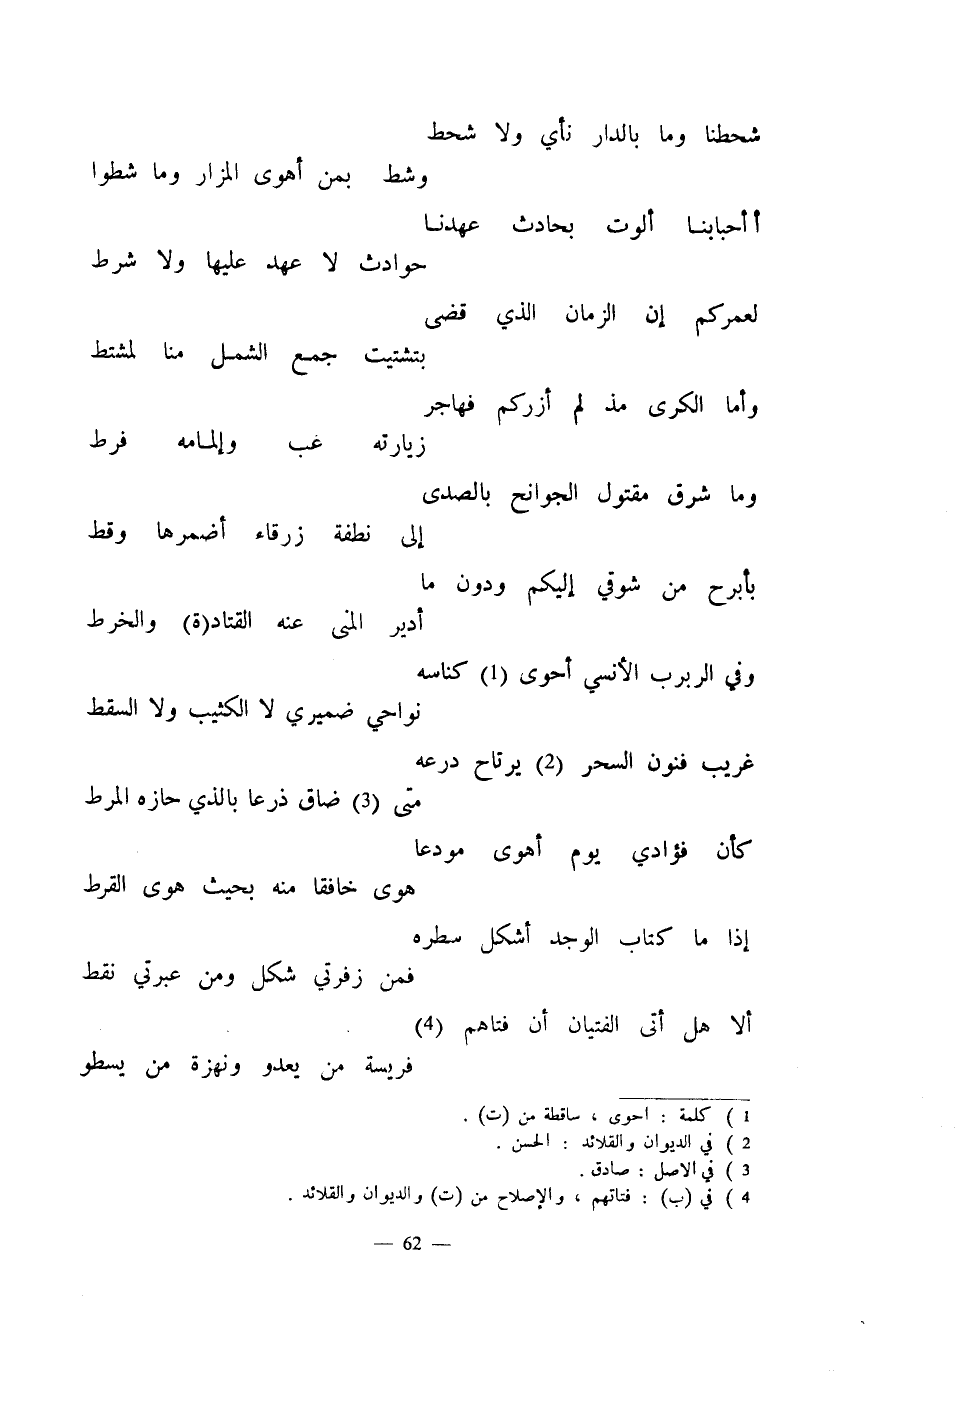 شحطنا وما بالدار نأي ولا شحط
وشط بمن أهوى المزار وما شطوا
أأحبابنا ألوت بحادث عهدنا
حوادث لا عهد عليها ولا شرط
لعمركم إن الزمان الذي قضى
بتشتيت جمع الشمل منا لمشتط
وأما الكرى مذ لم أزركم فهاجر
زيارته غب وإلمامه فرط
وما شرق مقتول الجوانح بالصدى
إلى نطفة زرقاء أضمرها وقط
بأبرح من شوقي إليكم ودون ما
أدير المنى عنه القتاد(ة) والخرط
وفي الربرب الأنسي أحوى (1) كناسه
نواحي ضميري لا الكثيب ولا السقط
غريب فنون السحر (2) يرتاح درعه
متى (3) ضاق ذرعا بالذي حازه المرط
كأن فؤادي يوم أهوى مودعا
هوى خافقا منه بحيث هوى القرط
إذا ما كتاب الوجد أشكل سطره
فمن زفرتي شكل ومن عبرتي نقط
ألا هل أتى الفتيان أن فتاهم (4)
فريسة من يعدو ونهزة من يسطو
1 ) كلمة : احوى ، ساقطة من (ت) .
2 ) في الديوان والقلائد : الحسن .
3 ) في الاصل : صادق .
4 ) في (ب) : فتاتهم ، والإصلاح من (ت) والديوان والقلائد .
— 62 —